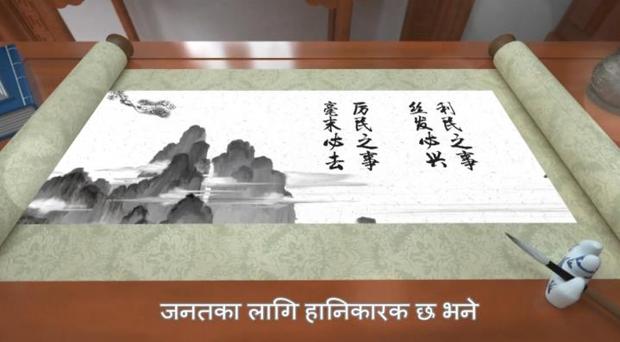 利民之事
丝发必兴
厉民之事
毫末必去
जनतका लागि हानिकारक छ भने